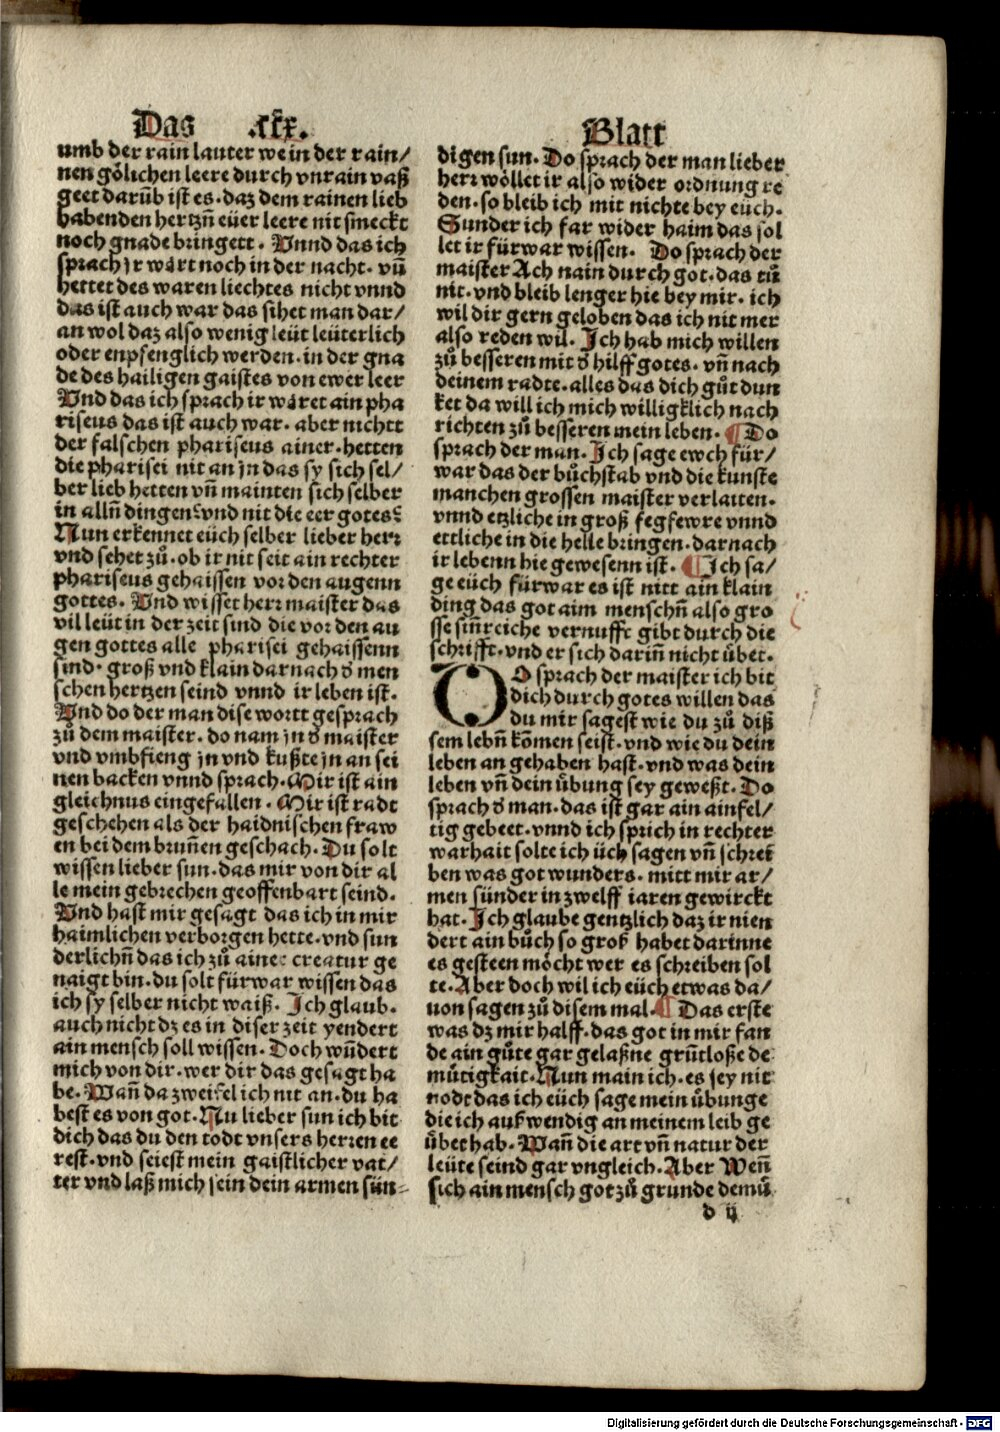 Das .xxx. Blatt
umb der rain lauter wein der rain/
nen gölichen leere durch vnrain vaß
geet darūb ist es. daz dem rainen lieb
habenden hertzn̄ eüer leere nit smeckt
noch gnade bringett. Vnnd das ich
sprach jr wart noch in der nacht. vn̄
hettet des waren liechtes nicht vnnd
das ist auch war das sihet man dar/
an wol daz also wenig leüt leüterlich
oder enpfenglich werden. in der gna
de des hailigen gaistes von ewer leer
Vnd das ich sprach ir waret ain pha
riseus das ist auch war. aber nichtt
der falschen phariseus ainer. hetten
die pharisei nit an jn das sy sich sel/
ber lieb hetten vn̄ mainten sich selber
in alln̄ dingen vnd nit die eer gotes
Nun erkennet eüch selber lieber herr
vnd sehet zů. ob ir nit seit ain rechter
phariseus gehaissen vor den augenn
gottes. Vnd wisset herr maister das
vil leüt in der zeit sind die vor den au
gen gottes alle pharisei gehaissenn
sind. groß vnd klain darnach d̄ men
schen hertzen seind vnnd ir leben ist.
Vnd do der man dise wortt gesprach
zů dem maister. do nam jn d̄ maister
vnd vmbfieng jn vnd kußte jn an sei
nen backen vnnd sprach. Mir ist ain
gleichnus eingefallen. Mir ist radt
geschehen als der haidnischen fraw
en bei dem brun̄en geschach. Du solt
wissen lieber sun. das mir von dir al
le mein gebrechen geoffenbart seind.
Vnd hast mir gesagt das ich in mir
haimlichen verborgen hette. vnd sun
derlichn̄ das ich zů ainer creatur ge
naigt bin. du solt fürwar wissen das
ich sy selber nicht waiß. Ich glaub.
auch nicht dz es in diser zeit yendert
ain mensch soll wissen. Doch wūdert
mich von dir. wer dir das gesagt ha
be. Wan̄ da zweifel ich nit an. du ha
best es von got. Nu lieber sun ich bit
dich das du den todt vnsers herren ee
rest. vnd seiest mein gaistlicher vat/
ter vnd laß mich sein dein armen sün-
digen sun. Do sprach der man lieber
herr wöllet ir also wider ordnung re
den. so bleib ich mit nichte bey eüch.
Sunder ich far wider haim das sol
let ir fürwar wissen. Do sprach der
maister Ach nain durch got. das tů
nit. vnd bleib lenger hie bey mir. ich
wil dir gern geloben das ich nit mer
also reden wil. Ich hab mich willen
zů besseren mit d̄ hilff gotes. vn̄ nach
deinem radte. alles das dich gůt dun
ket da will ich mich willigklich nach
richten zů besseren mein leben. ¶ Do
sprach der man. Ich sage ewch für/
war das der bůchstab vnd die kunste
manchen grossen maister verlaiten.
vnnd etzliche in groß fegfewre vnnd
ettliche in die helle bringen. darnach
ir lebenn hie gewesenn ist. ¶ Ich sa/
ge eüch fürwar es ist nitt ain klain
ding das got aim menschn̄ also gro
sse sin̄reiche vernufft gibt durch die
schrifft. vnd er sich darin̄ nicht übet.
DO sprach der maister ich bit
dich durch gotes willen das
du mir sagest wie du zů diß
sem lebn̄ kōmen seist. vnd wie du dein
leben an gehaben hast. vnd was dein
leben vn̄ dein übung sey geweßt. Do
sprach d̄ man. das ist gar ain ainfel/
tig gebeet. vnnd ich sprich in rechter
warhait solte ich üch sagen vn̄ schrei
ben was got wunders. mitt mir ar/
men sünder in zwelff iaren gewirckt
hat. Ich glaube gentzlich daz ir nien
dert ain bůch so groß habet darinne
es gesteen möcht wer es schreiben sol
te. Aber doch wil ich eüch etwas da/
uon sagen zů disem mal. ¶ Das erste
was dz mir halff. das got in mir fan
de ain gůte gar gelaßne grūtloße de
mütigkait. Nun main ich. es sey nit
nodt das ich eüch sage mein übunge
die ich außwendig an meinem leib ge
übet hab. Wan̄ die art vn̄ natur der
leüte seind gar vngleich. Aber Wen̄
sich ain mensch got zů grunde demů
d ij
Digitalisierung gefördert durch die Deutsche Forschungsgemeinschaft - DFG